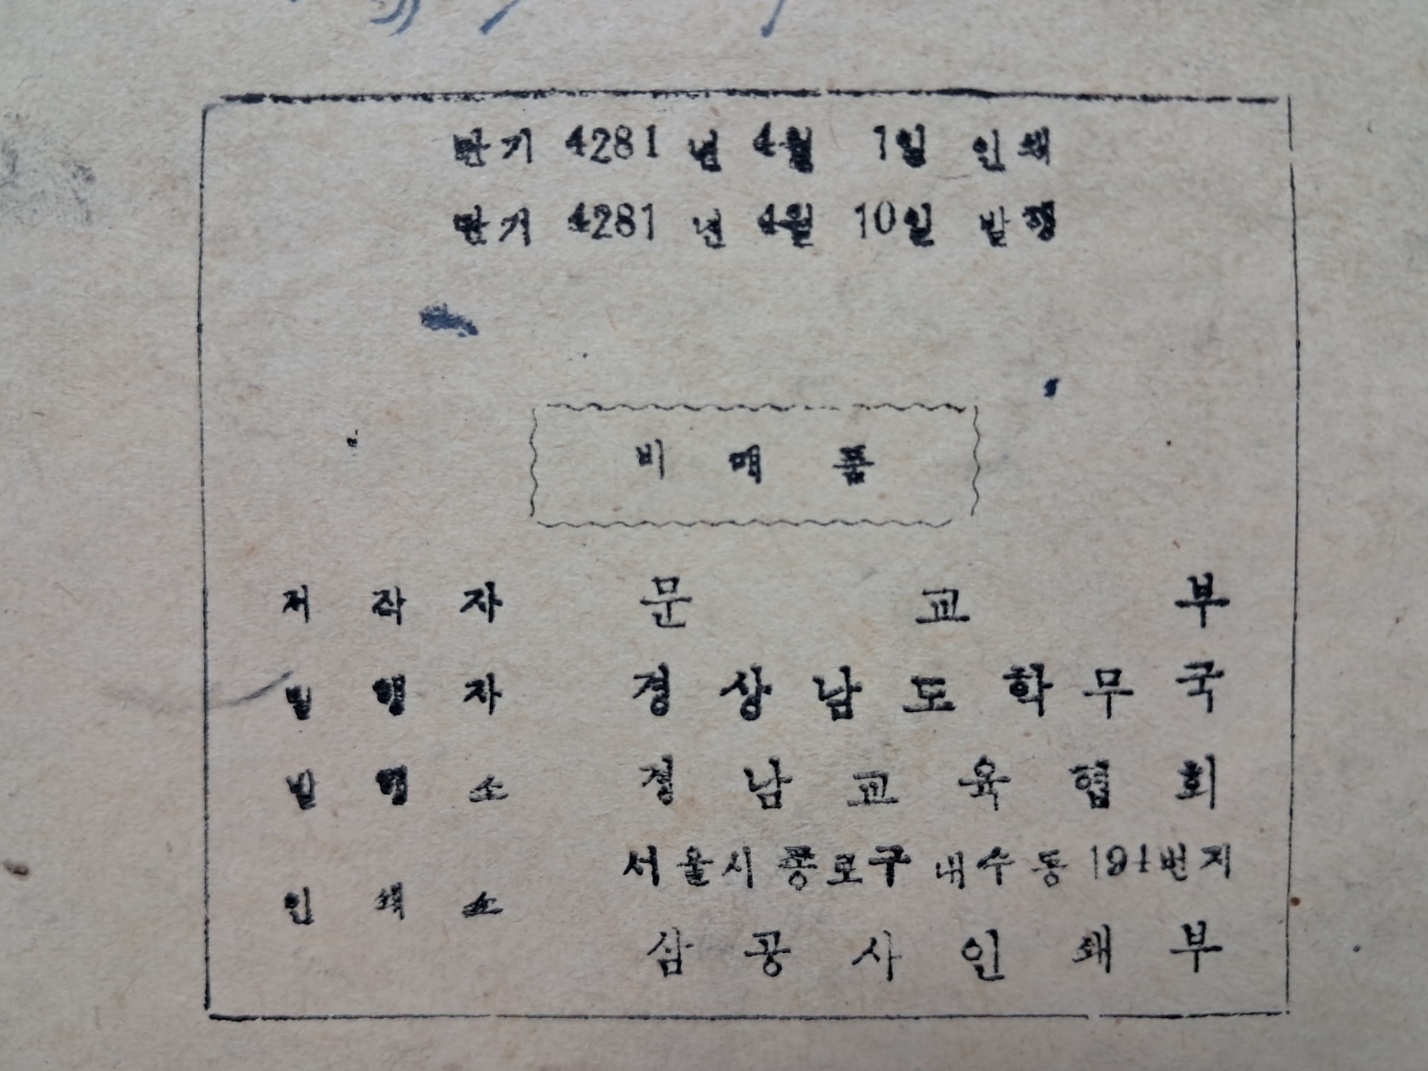 단기 4281 년 4월 1일 인쇄
단기 4281 년 4월 10일 발행
비 매 품
저 작 자 문 교 부
발 행 자 경 상 남 도 학 무 국
발 행 소 경 남 교 육 협 회
인 쇄 소 서울시 종로구 내수동 194번지
삼 공 사 인 쇄 부